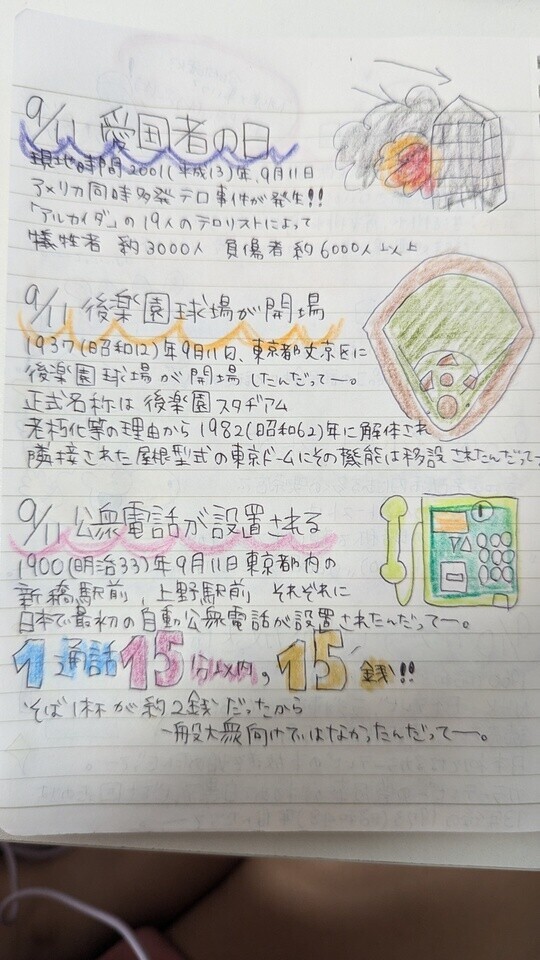 9/11 愛国者の日
現地時間2001(平成13)年、9月11日
アメリカ同時多発テロ事件が発生!!
「アルカイダ」の19人のテロリストによって
犠牲者 約3000人 負傷者 約6000人以上
9/11 後楽園球場が開場
1937(昭和12)年9月11日、東京都文京区に
後楽園球場が開場したんだってー。
正式名称は後楽園スタヂアム
老朽化等の理由から1982(昭和62)年に解体され
隣接された屋根型式の東京ドームにその機能は移設されたんだってー
9/11 公衆電話が設置される
1900(明治33)年9月11日東京都内の
新橋駅前、上野駅前 それぞれに
日本で最初の自動公衆電話が設置されたんだってー。
1通話15分以内,15銭!!
そば1杯が約2銭だったから
一般大衆向けではなかったんだってー。